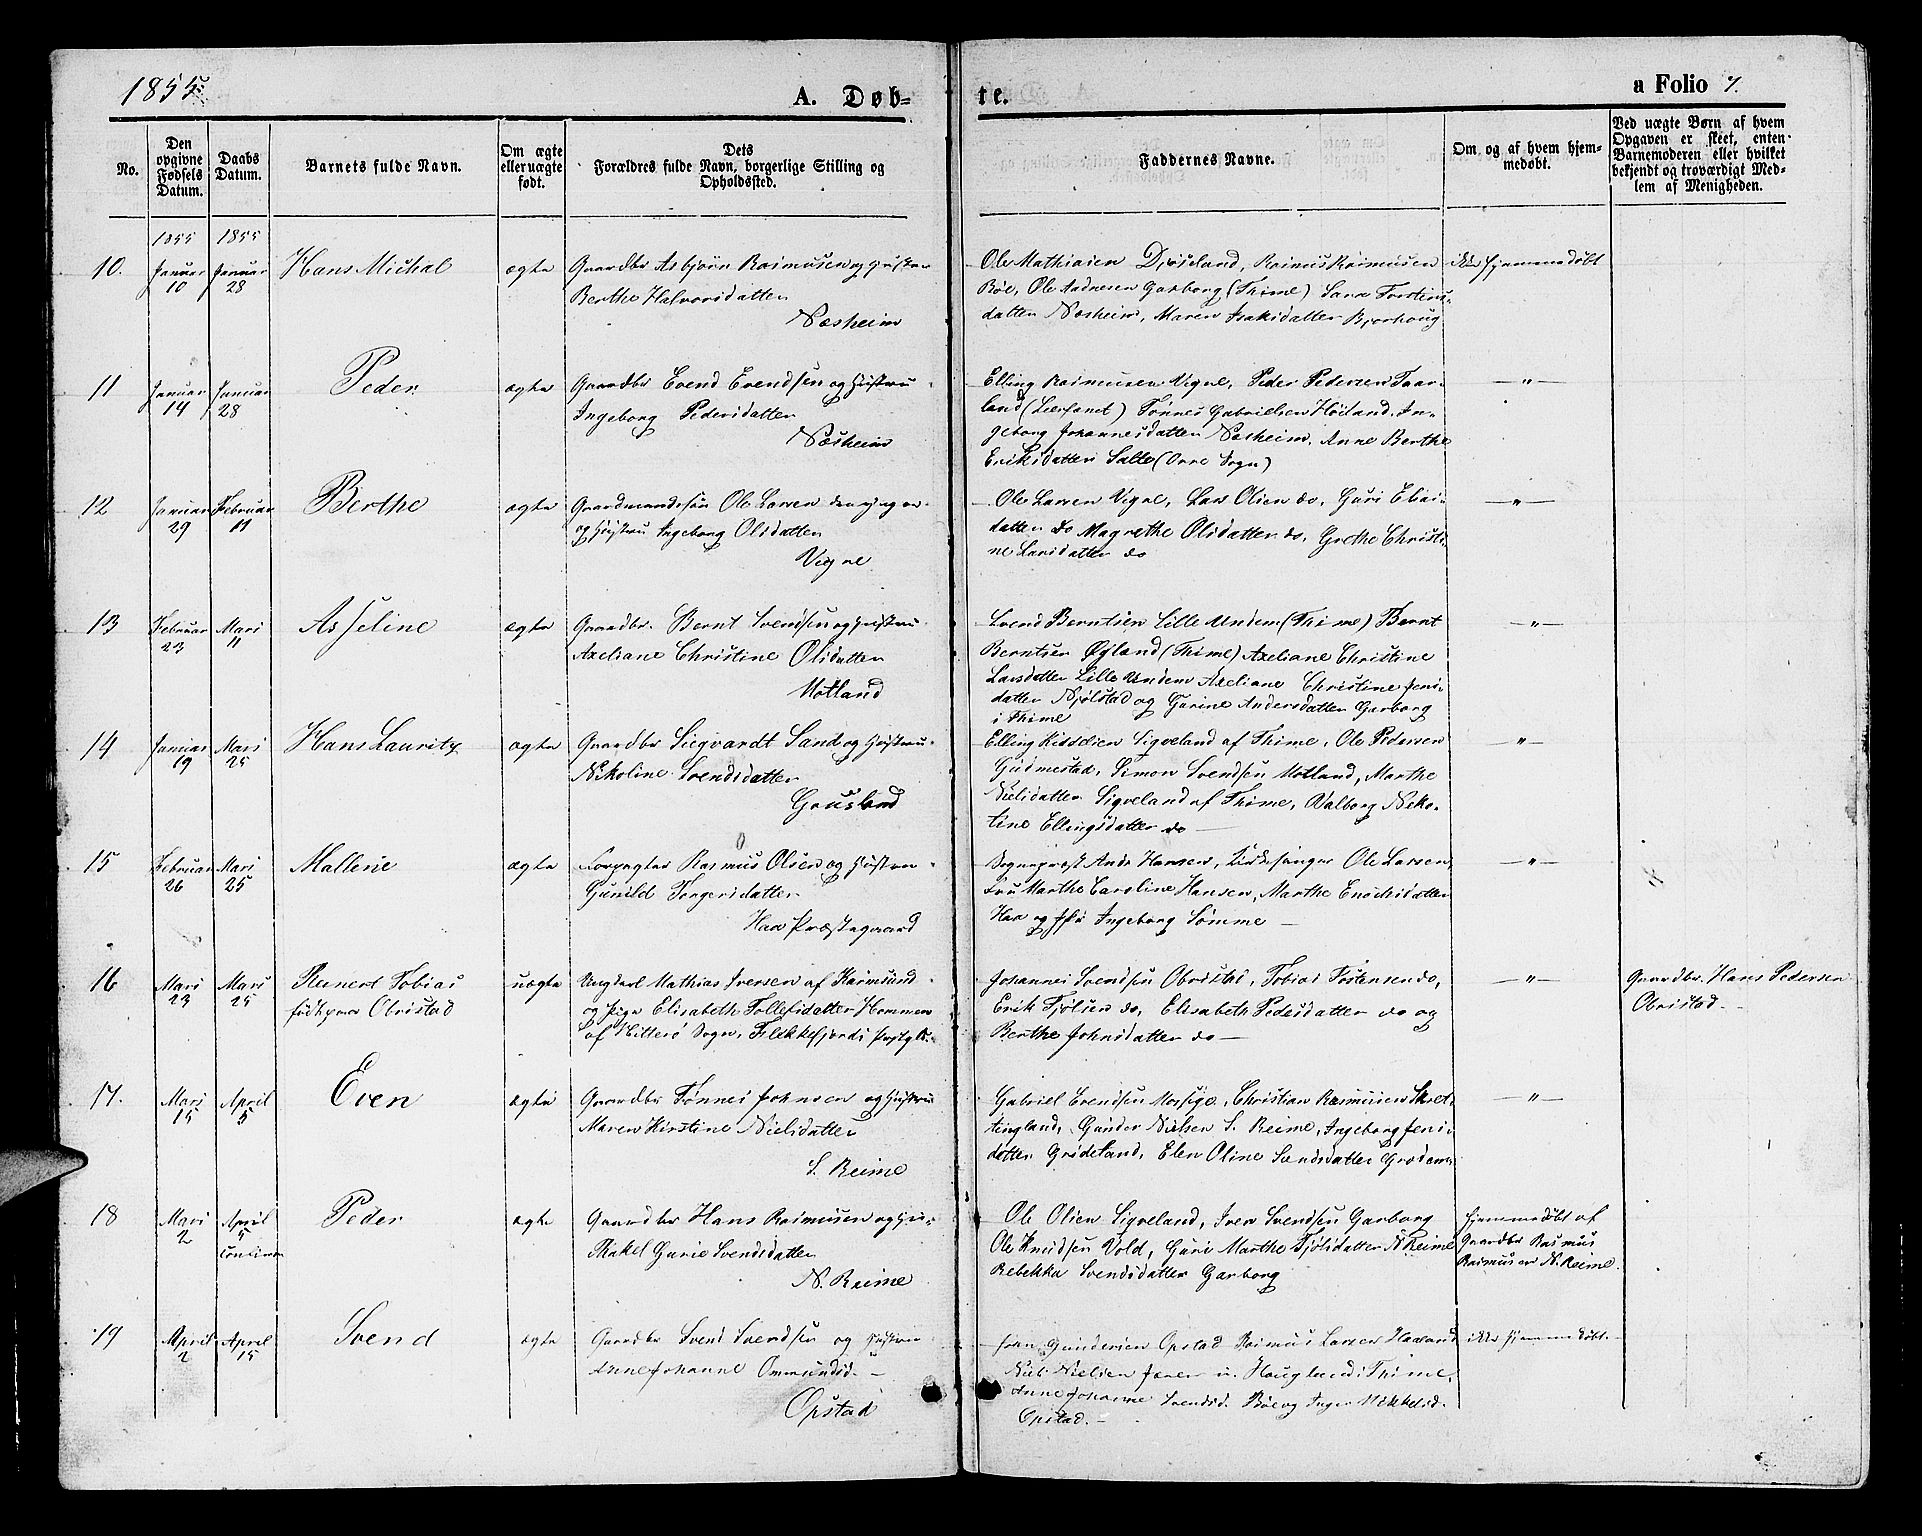 1855.
A. Døb-
te.
a Folio 7.
No.
Den opgivne Fødsels Datum.
Daabs Datum.
Barnets fulde Navn.
Om ægte eller uægte født.
Dets
Forældres fulde Navn, borgerlige Stilling og
Opholdssted.
Faddernes Navne.
Om og af hvem hjem-
medøbt.
Ved uægte Børn af hvem
Opgaven er skeet, enten
Barnemoderen eller hvilket
bekjendt og troværdigt Med-
lem af Menigheden.
1855 1855
10. Januar 10 Januar 28 Hans Michal ægte
Gaardbr Asbjørn Rasmusen og Hustru
Berthe Halvorsdatter
Næsheim
Ole Mathiasen Djøseland, Rasmus Rasmusen
Bøe, Ole Aadnesen Garborg (Thime) Sara Torstins-
datter Næsheim, Maren Isaksdatter Bjorhoug
ikke hjemmedøbt
11 Januar 14 Januar 28 Peder ægte
Gaardbr Evend Evendsen og Hustru
Ingeborg Pedersdatter
Næsheim
Elling Rasmusen Vigre, Peder Pedersen Taar-
land (Lærfanet) Tønnes Gabrielsen Høiland, In-
geborg Johannesdatter Næsheim, Anne Berthe
Eriksdatter Salte (Orre Sogn)
—„—
12 Januar 29 Februar 11 Berthe ægte
Gaardmandssøn Ole Larsen den yngre
og Hustru Ingeborg Olsdatter
Vigre
Ole Larsen Vigre, Lars Olsen do, Guri Elias-
datter do Magrethe Olsdatter do, Grethe Christi-
ne Larsdatter do
—„—
13 Februar 23 Mars 11 Asseline ægte
Gaardbr. Bernt Svendsen og Hustru
Axeliane Christine Olsdatter
Motland
Svend Berntsen Lille Undem (Thime) Bernt
Berntsen Øyland (Thime) Axeliane Christine
Larsdatter Lille Undem Axeliane Christine Jens-
datter Njølstad og Gurine Andersdatter Garborg
i Thime
—„—
14 Januar 19 Mars 25 Hans Lauritz ægte
Gaardbr Siegvardt Sand og Hustru
Nikoline Svendsdatter
Grusland
Elling Sigveland af Thime, Ole Pedersen
Gudmestad, Simon Svendsen Motland, Marthe
Nielsdatter Sigveland af Thime, Valborg Niko-
line Ellingsdatter do —
—„—
15 Februar 26 Mars 25 Mallene ægte
Forpagter Rasmus Olsen og Hustru
Gunild Torgersdatter
Haa Præstegaard
Sognepræst Ands Hansen, Kirkesanger Ole Larsen,
Fru Marthe Caroline Hansen, Marthe Enochsdatter
Haa og Ingeborg Sømme —
—„—
16 Mars 23 Mars 25 Reinert Tobias
født paa Obristad uægte
Ungkarl Mathias Iversen af Karmsund
og Pige Elisabeth Tollefsdatter Hommen
af Hitterø Sogn, Flekkefjords Prstgld.
Johannes Svendsen Obristad, Tobias Tostensen do,
Erik Tjølsen do, Elisabeth Pedersdatter do og
Berthe Johnsdatter do —
—„—
Gaardbr. Hans Pedersen
Obristad —
17. Mars 15 April 5 Even ægte
Gaardbr Tønnes Johnsen og Hustru
Maren Kirstine Nielsdatter
S. Reime
Gabriel Evendsen Mossige, Christian Rasmusen Skret-
tingland, Gunder Nielsen S. Reime, Ingeborg Jens-
datter Grødeland, Elen Oline Svendsdatter Grødem
—„—
18 Mars 2 April 5 Peder ægte
Gaardbr Hans Rasmusen og Hu-
Rakel Gurie Svendsdatter
N. Reime
Ole Olsen Sigveland, Iver Svendsen Garborg
Ole Knudsen Vold, Guri Marthe Tjølsdatter N Reime
Rebekka Svendsdatter Garborg
hjemmedøbt af
Gaardbr Rasmus
Rasmusen N. Reime.
19 April 2 April 15 Svend ægte
Gaardbr Svend Svendsen og Hustru
Anne Johanne Ommundsd. —
Opstad
Gundersen Opstad Rasmus Larsen Haaland
Niels Nielsen Hougland i Thime,
Anne Johanne Svendsd. Bø og Inger Mikkelsd.
Opstad. —
ikke hjemmedøbt. —